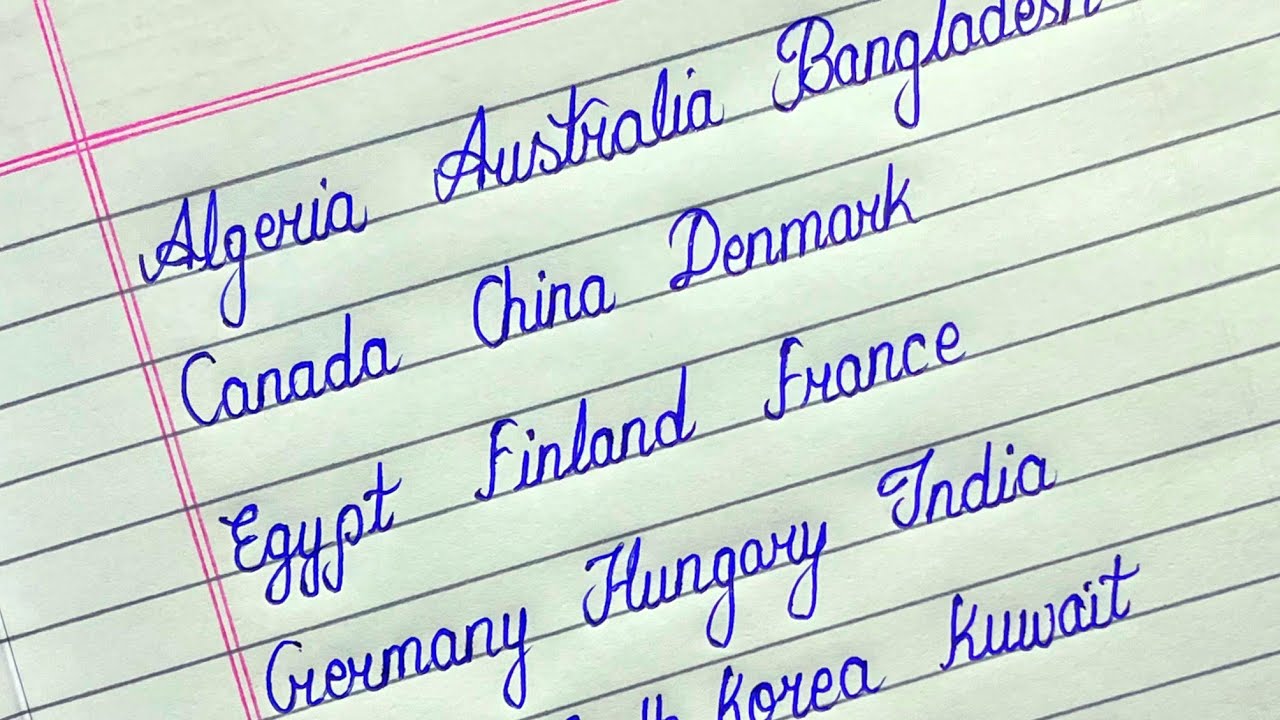 Algeria Australia Bangladesh
Canada China Denmark
Egypt Finland France
Germany Hungary India
Korea Kuwait